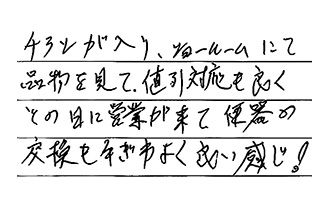 チラシが入り、ショールームにて
品物を見て、値引対応も良く
その日に営業が来て 便器の
交換も手ぎわよく良い感じ!